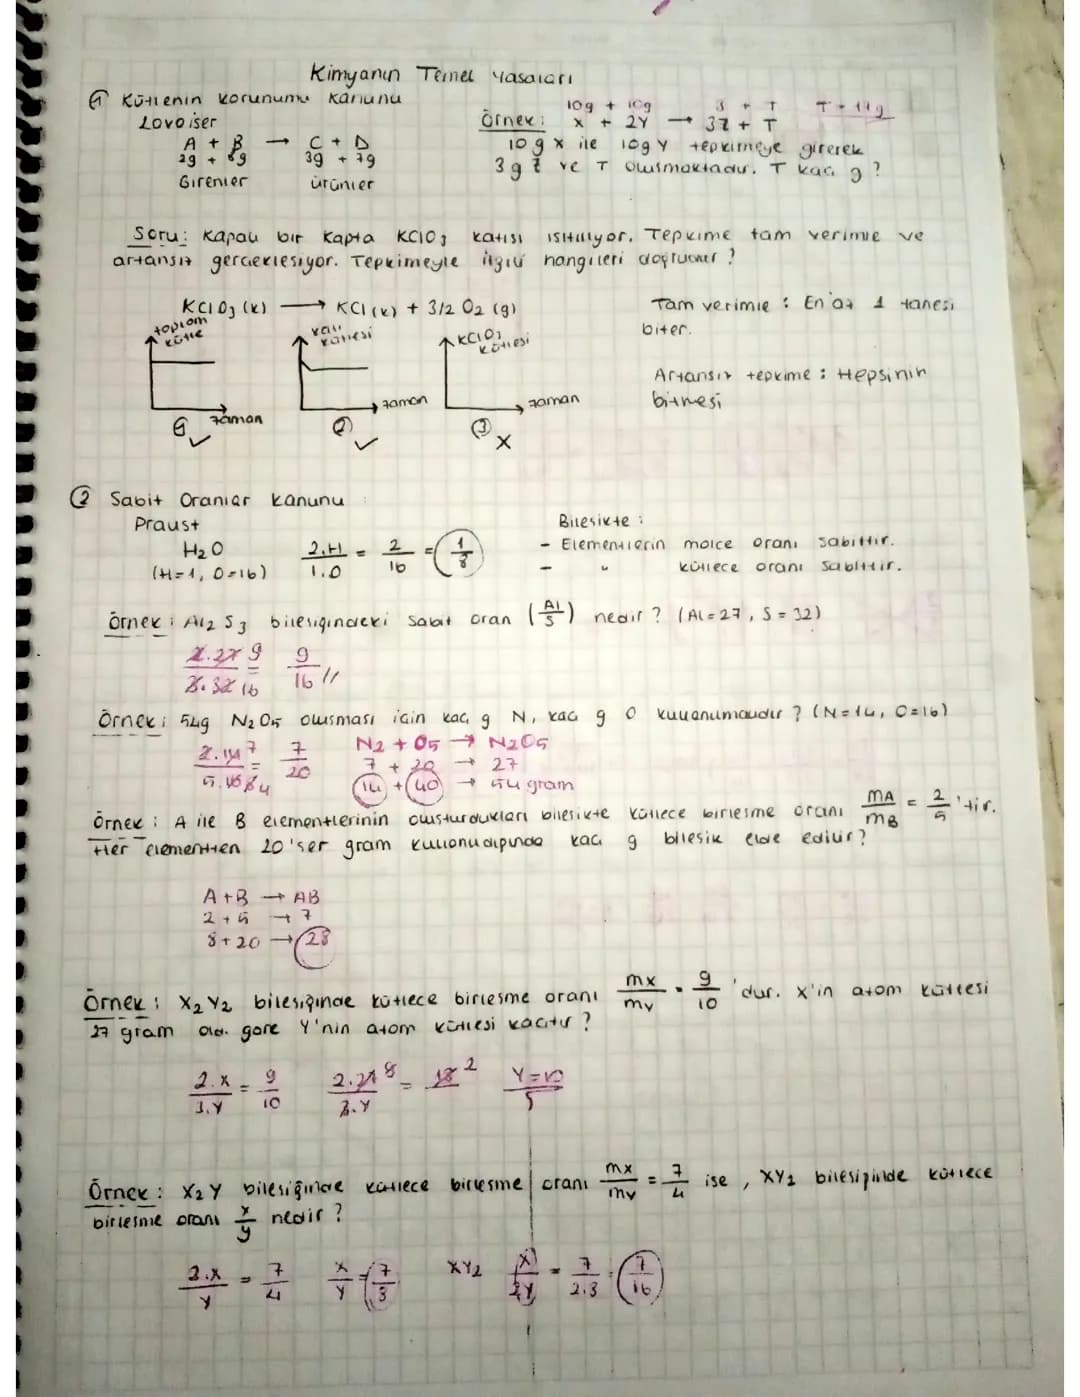 Kimyanın Temel Yasaları
① Kütlenin Korunumu Kanunu
Lavoiser
A + B → C + D
2g + 8g 3g + 7g
Girenler ürünler
10g + 10g 3 + T T = 17g
Örnek: X + 2Y → 3Z + T
10 g X ile 10g Y tepkimeye girerek
3g Z ve T oluşmaktadır. T kaç g ?
Soru: Kapalı bir kapta KClO3 katısı ısıtılıyor. Tepkime tam verimle ve
artansız gerçekleşiyor. Tepkimeyle ilgili hangileri doğrudur ?
KClO3 (k) → KCl (k) + 3/2 O2 (g)
toplam kütle
katı kütlesi
KClO3 kütlesi
zaman zaman zaman
① ✓ ② ✓ ③ X
Tam verimle : En az 1 tanesi
biter.
Artansız tepkime : Hepsinin
bitmesi
② Sabit Oranlar Kanunu :
Praust
H2O 2.H/1.O = 2/16 = 1/8
(H=1, O=16)
Bileşikte :
- Elementlerin molce oranı sabittir.
- " kütlece oranı sabittir.
Örnek : Al2 S3 bileşiğindeki sabit oran (Al/S) nedir ? (Al=27, S=32)
2.27 9/3.32 16 = 9/16 //
Örnek : 54g N2O5 oluşması için kaç g N, kaç g O kullanılmalıdır ? (N=14, O=16)
2.14 7/5.16 8 4 = 7/20
N2 + O5 → N2O5
7 + 20 → 27
14 + 40 → 54 gram
Örnek : A ile B elementlerinin oluşturdukları bileşikte kütlece birleşme oranı mA/mB = 2/5 'tir.
Her elementten 20'şer gram kullanıldığında kaç g bileşik elde edilir?
A+B → AB
2+5 → 7
8+20 → 28
Örnek : X2Y2 bileşiğinde kütlece birleşme oranı mx/my = 9/10 'dur. X'in atom kütlesi
27 gram old. göre Y'nin atom kütlesi kaçtır ?
2.X/3.Y = 9/10
Örnek : X2Y bileşiğinde kütlece birleşme oranı mx/my = 7/4 ise, XY2 bileşiğinde kütlece
birleşme oranı x/y nedir ?
2.X/Y = 7/4 X/Y = 7/3 XY2 X/2Y = 7/2.3 = 7/16